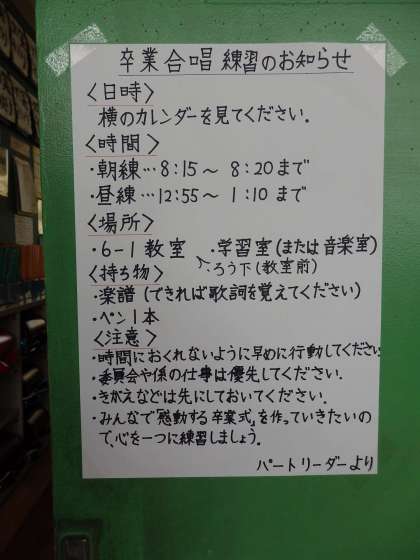 卒業合唱 練習のお知らせ
〈日時〉
横のカレンダーを見てください.
〈時間〉
・朝練…8:15〜 8:20まで
・昼練…12:55〜 1:10 まで
〈場所〉
・6-1 教室 ・学習室(または音楽室)
・ろう下(教室前)
〈持ち物〉
・楽譜 (できれば歌詞を覚えてください)
・ペン1本
〈注意〉
・時間におくれないように早めに行動してください
・委員会や係の仕事は優先してください.
・きがえなどは先にしておいてください.
・みんなで「感動する卒業式」を作っていきたいの
で、心を一つに練習しましょう.
パートリーダーより